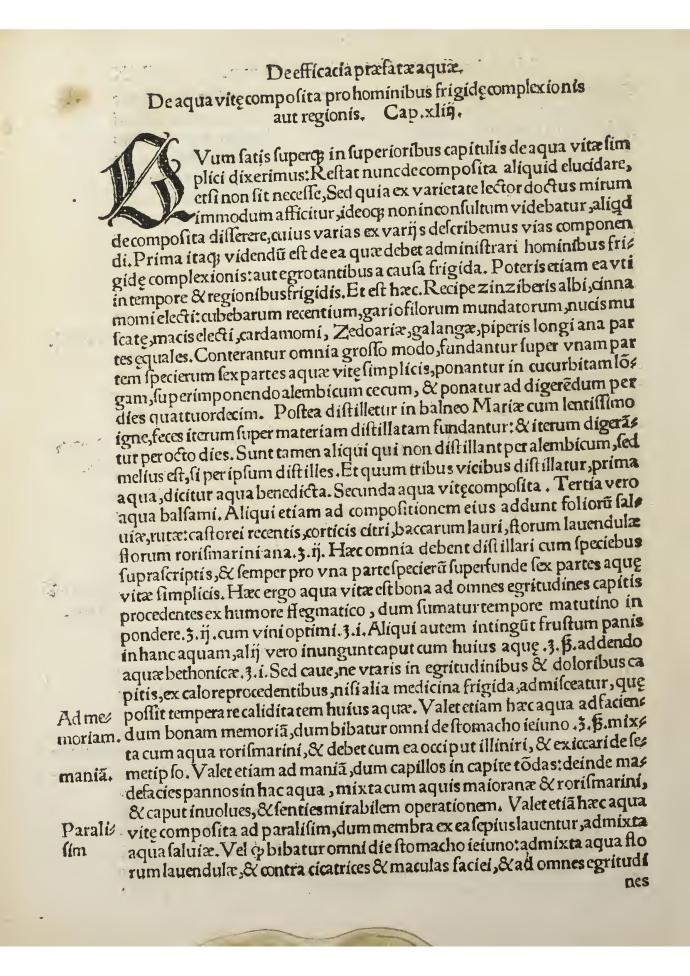 De efficacia præfatæ aquæ.
De aqua vitę composita pro hominibus frigidę complexionis
aut regionis. Cap. xliiij.
QVum satis superq; in superioribus capitulis de aqua vitæ sim
plici dixerimus: Restat nunc de composita aliquid elucidare,
etsi non sit necesse, Sed quia ex varietate lector doctus mirum
immodum afficitur, ideoq; non inconsultum videbatur, aliqd
de composita disserere, cuius varias ex varijs describemus vias componen
di. Prima itaq; videndū est de ea quæ debet administrari hominibus fri⸗
gidę complexionis: aut egrotantibus a causa frigida. Poteris etiam ea vti
in tempore & regionibus frigidis. Et est hæc. Recipe zinziberis albi, cinna
momi electi: cubebarum recentium, gariofilorum mundatorum, nucis mu
scatę, macis electi, cardamomi, Zedoariæ, galangæ, piperis longi ana par
tes ęquales. Conterantur omnia grosso modo, fundantur super vnam par
tem specierum sex partes aquæ vitę simplicis, ponantur in cucurbitam lō⸗
gam, superimponendo alembicum cecum, & ponatur ad digerēdum per
dies quattuordecim. Postea distilletur in balneo Mariæ cum lentissimo
igne, feces iterum super materiam distillatam fundantur: & iterum digerā⸗
tur per octo dies. Sunt tamen aliqui qui non distillant per alembicum, sed
melius est, si per ipsum distilles. Et quum tribus vicibus distillatur, prima
aqua, dicitur aqua benedicta. Secunda aqua vitę composita. Tertia vero
aqua balsami. Aliqui etiam ad compositionem eius addunt foliorū sal⸗
uiæ, rutæ: castorei recentis, corticis citri, baccarum lauri, florum lauendulæ
florum rorismarini ana. ʒ. ij. Hæc omnia debent distillari cum speciebus
suprascriptis, & semper pro vna parte specierū superfunde sex partes aquę
vitæ simplicis. Hæc ergo aqua vitæ est bona ad omnes egritudines capitis
procedentes ex humore flegmatico, dum sumatur tempore matutino in
pondere. ʒ. ij. cum vini optimi. ʒ. i. Aliqui autem intingūt frustum panis
in hanc aquam, alij vero inungunt caput cum huius aquę. ʒ. ß. addendo
aquæ bethonicæ. ʒ. i. Sed caue, ne vtaris in egritudinibus & doloribus ca
pitis, ex calore procedentibus, nisi alia medicina frigida, admisceatur, quę
possit temperare caliditatem huius aquæ. Valet etiam hæc aqua ad facien⸗
Ad me⸗
moriam.
dum bonam memoriā, dum bibatur omni de stomacho ieiuno. ʒ. ß. mix⸗
ta cum aqua rorismarini, & debet cum ea occiput illiniri, & exiccari de se⸗
maniā.
metipso. Valet etiam ad maniā, dum capillos in capite tōdas: deinde ma⸗
defacies pannos in hac aqua, mixta cum aquis maioranæ & rorismarini,
& caput inuolues, & senties mirabilem operationem. Valet etiā hæc aqua
Parali⸗
sim
vitę composita ad paralisim, dum membra ex ea sępius lauentur, admixta
aqua saluiæ. Vel ꝙ bibatur omni die stomacho ieiuno: admixta aqua flo
rum lauendulæ, & contra cicatrices & maculas faciei, & ad omnes egritudi
nes